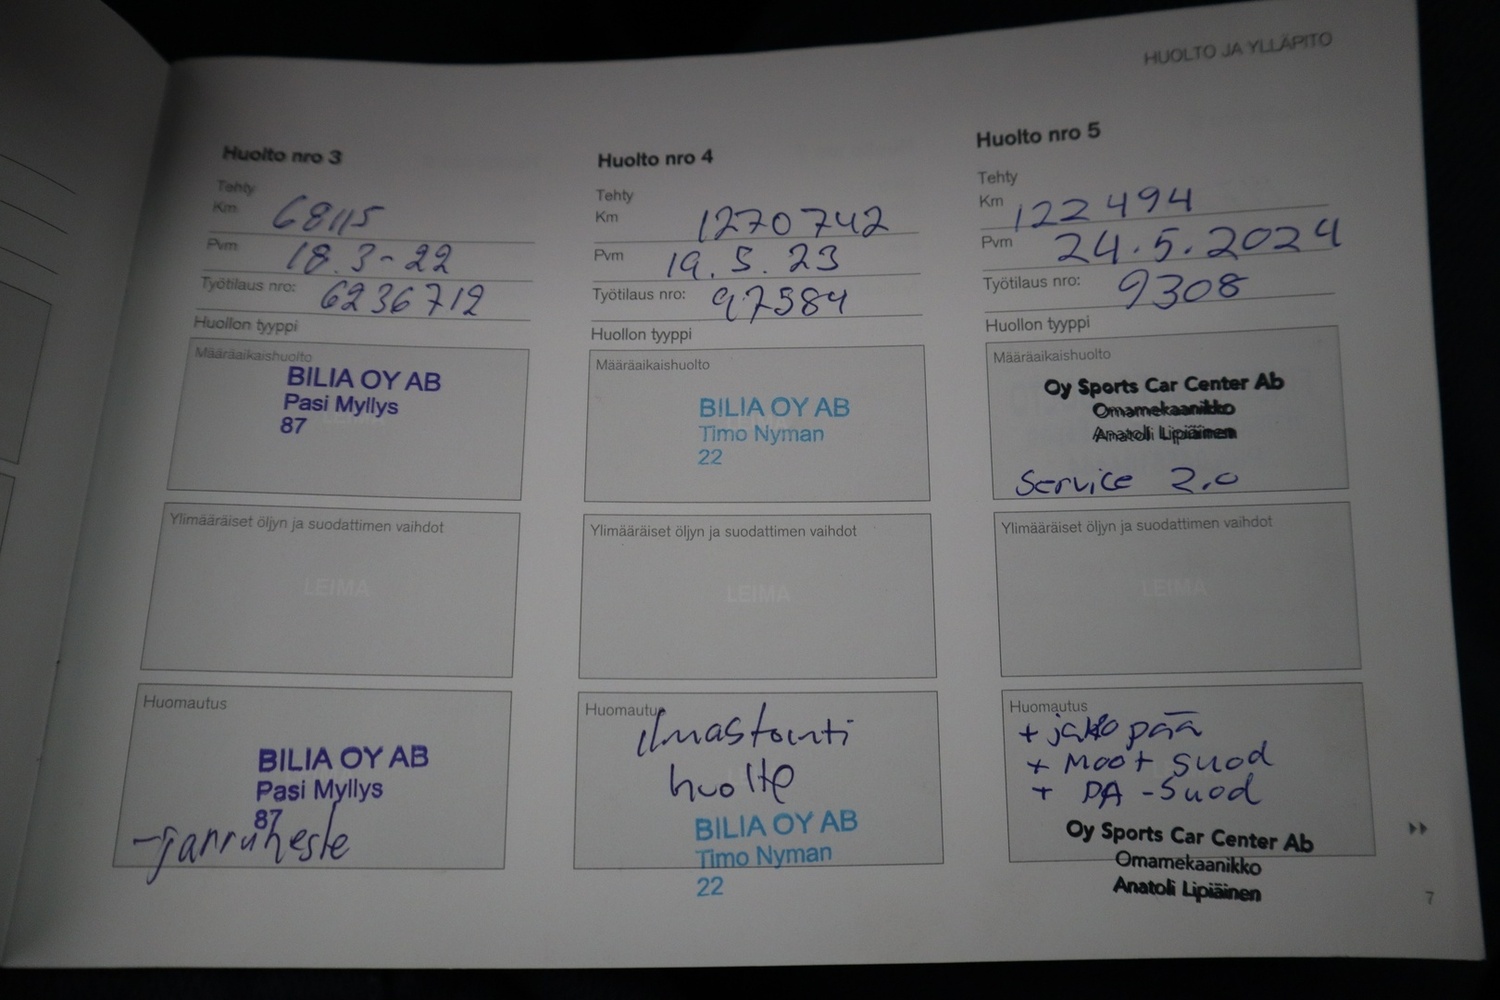 HUOLTO JA YLLÄPITO
Huolto nro 3
Tehty
Km 68115
Pvm 18.3-22
Työtilaus nro: 6236712
Huollon tyyppi
Määräaikaishuolto
BILIA OY AB
Pasi Myllys
87
Ylimääräiset öljyn ja suodattimen vaihdot
LEIMA
Huomautus
BILIA OY AB
Pasi Myllys
87
-jarruneste
Huolto nro 4
Tehty
Km 1270742
Pvm 19.5.23
Työtilaus nro: 97584
Huollon tyyppi
Määräaikaishuolto
BILIA OY AB
Timo Nyman
22
Ylimääräiset öljyn ja suodattimen vaihdot
LEIMA
Huomautus
ilmastointi
huolto
BILIA OY AB
Timo Nyman
22
Huolto nro 5
Tehty
Km 122494
Pvm 24.5.2024
Työtilaus nro: 9308
Huollon tyyppi
Määräaikaishuolto
Oy Sports Car Center Ab
Omamekaanikko
Anatoli Lipiäinen
Service 2.0
Ylimääräiset öljyn ja suodattimen vaihdot
LEIMA
Huomautus
+ jakopää
+ Moot suod
+ PA -suod
Oy Sports Car Center Ab
Omamekaanikko
Anatoli Lipiäinen
7